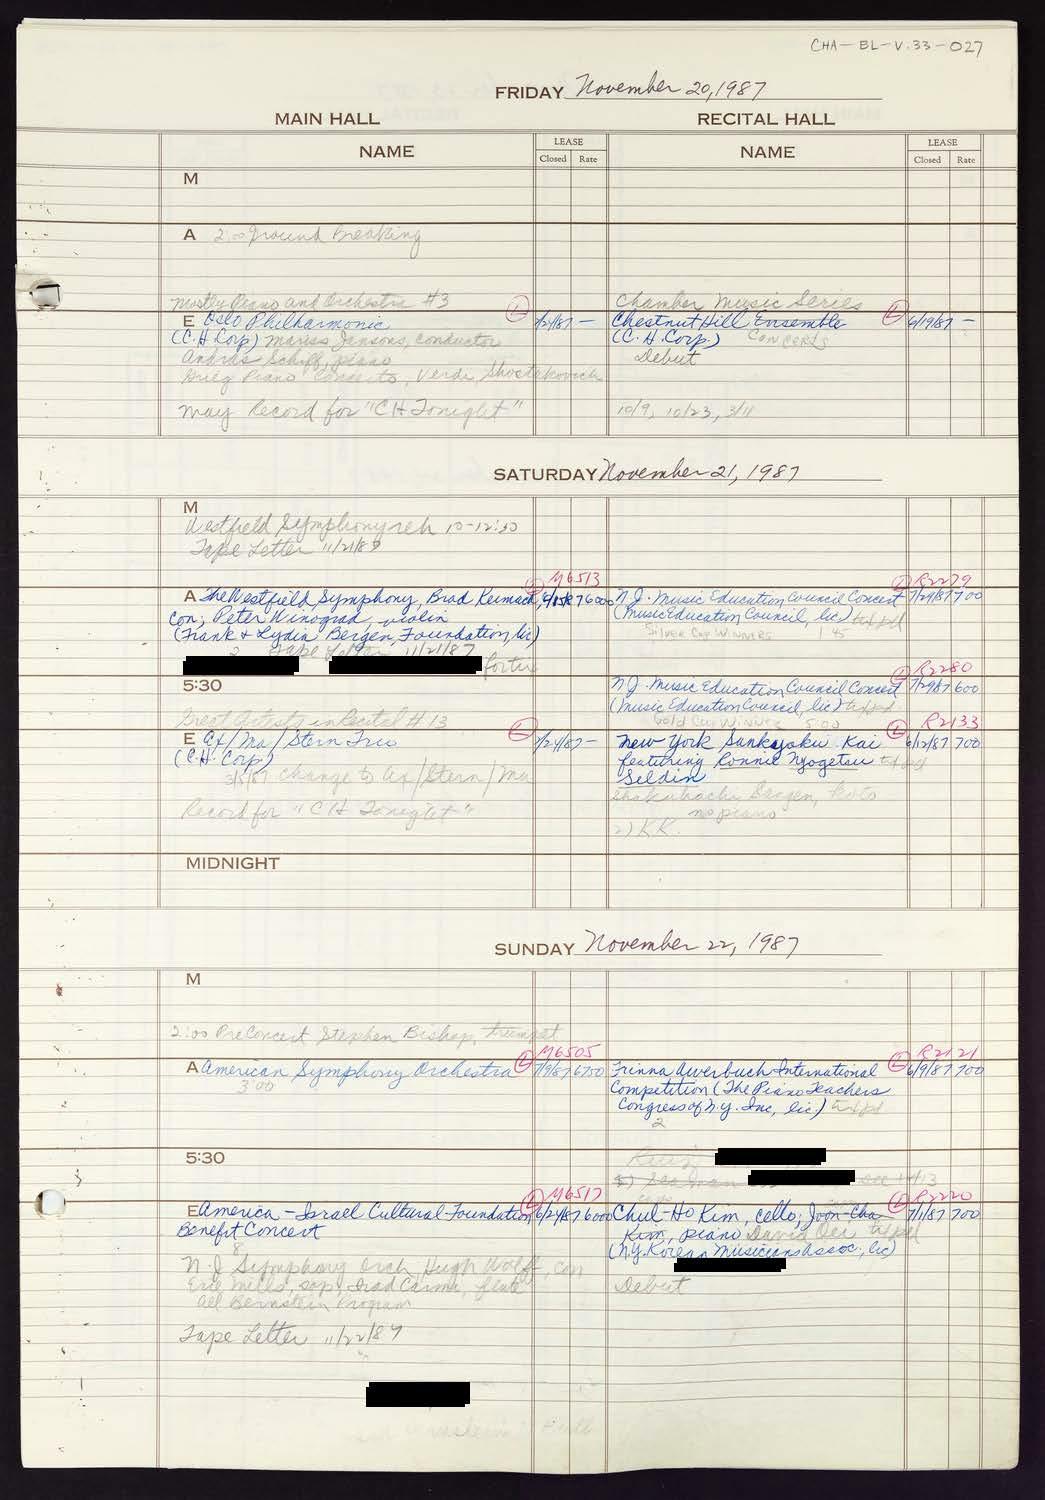 CHA-BL-V.33-027
FRIDAY November 20, 1987
MAIN HALL
RECITAL HALL
NAME
LEASE
Closed Rate
NAME
LEASE
Closed Rate
M
A 2:00 Ground Breaking
Mostly Piano and Orchestra #3
E Oslo Philharmonic
(C.H. Corp) Mariss Jansons, conductor
András Schiff, piano
Grieg Piano Concerto, Verdi, Shostakovich
May Record for "CH Tonight"
Chamber Music Series
Chestnut Hill Ensemble 6/19/87 -
(C.H. Corp.) CONCERTS
Debut
10/9, 10/23, 3/11
SATURDAY November 21, 1987
M
Westfield Symphony reh 10-12:30
Tape Letter 11/21/87
M6513
A The Westfield Symphony, Brad 6000
con; Peter Winograd, violin
(Frank & Lydia Bergen Foundation, lic)
2 Tape Letter 11/21/87
R2279
N.J. Music Education Council Concert 7/29/87 700
(Music Education Council, lic) txt pd
Silver Cup WINNERS 1:45
5:30
R2280
N.J. Music Education Council Concert 7/29/87 600
(Music Education Council, lic) txt pd
Gold Cup Winner 5:00
Great Artists in Recital #13
E Ax/Ma/Stern Trio
(C.H. Corp)
3/5/87 change to Ax/Stern/Ma
Record for "CH Tonight"
R2133
New York Sankyoku Kai 6/12/87 700
featuring Ronnie Nyogetsu txt pd
Seldin
Shakuhachi, Sangen, Koto
no piano
2) KK.
MIDNIGHT
SUNDAY November 22, 1987
M
2:00 PreConcert Stephen Bishop, trumpet
M6505
A American Symphony Orchestra 7/9/87 6750
3:00
R2121
Frinna Awerbuch International 6/9/87 700
Competition (The Piano Teachers
Congress of N.Y. Inc, lic.) txt pd
2
5:30
M6517
E America-Israel Cultural Foundation 6/24/87 6000
Benefit Concert
8
N.J. Symphony Orch, Hugh Wolff, con
Erie Mills, sop, Irad Carmi, flute
All Bernstein Program
Tape Letter 11/22/87
R2220
Chul-Ho Kim, cello; Joon-Cha 7/1/87 700
Kim, piano David Oei txt pd
(N.Y. Korean Musicians Assoc., lic)
Debut